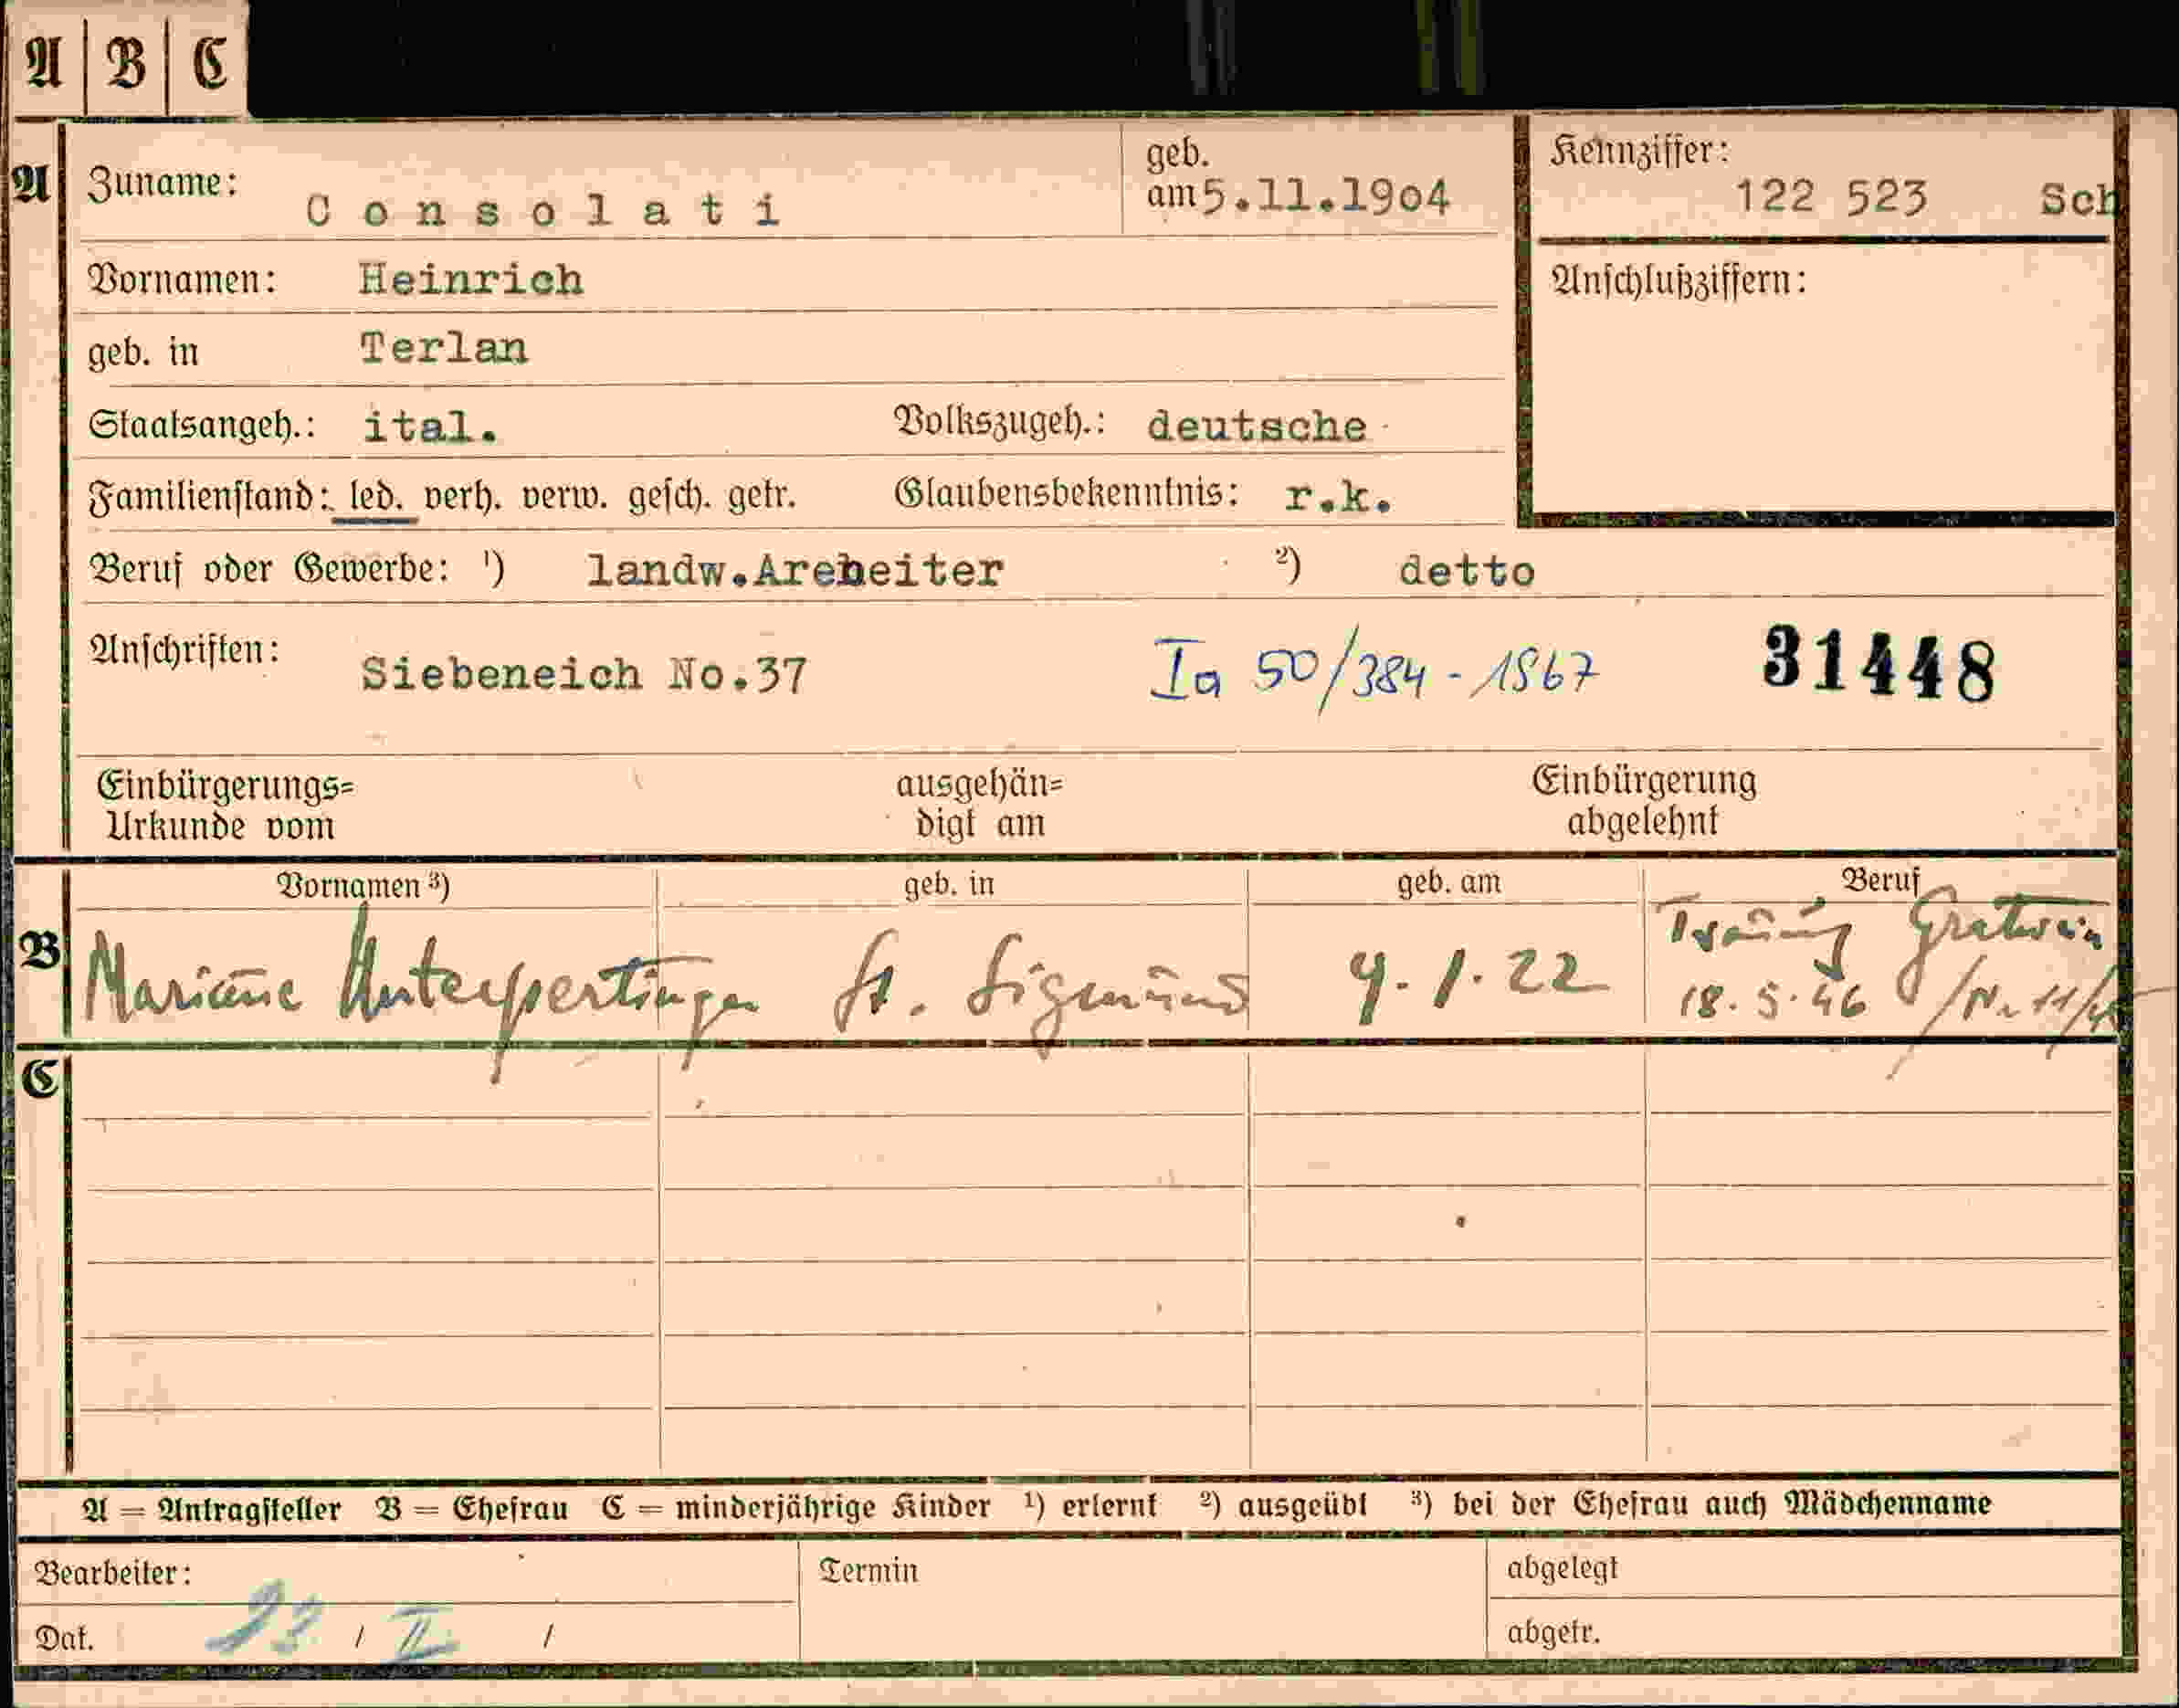 A B C
A
Zuname: Consolati geb. am 5.11.1904 Kennziffer: 122 523 Sch
Vornamen: Heinrich Anschlußziffern:
geb. in Terlan
Staatsangeh.: ital. Volkszugeh.: deutsche
Familienstand: led. verh. verw. gesch. getr. Glaubensbekenntnis: r.k.
Beruf oder Gewerbe: 1) landw.Arebeiter 2) detto
Anschriften: Siebeneich No.37 Ia 50/384-1967 31448
Einbürgerungs= ausgehän= Einbürgerung
Urkunde vom digt am abgelehnt
Vornamen 3) geb. in geb. am Beruf
B Mariane Unterpertinger St. Sigmund 4.1.22 Trauung Gratwein
18.5.46 /Nr 11/
C
A = Antragsteller B = Ehefrau C = minderjährige Kinder 1) erlernt 2) ausgeübt 3) bei der Ehefrau auch Mädchenname
Bearbeiter: Termin abgelegt
Dat. 23 / II / abgetr.